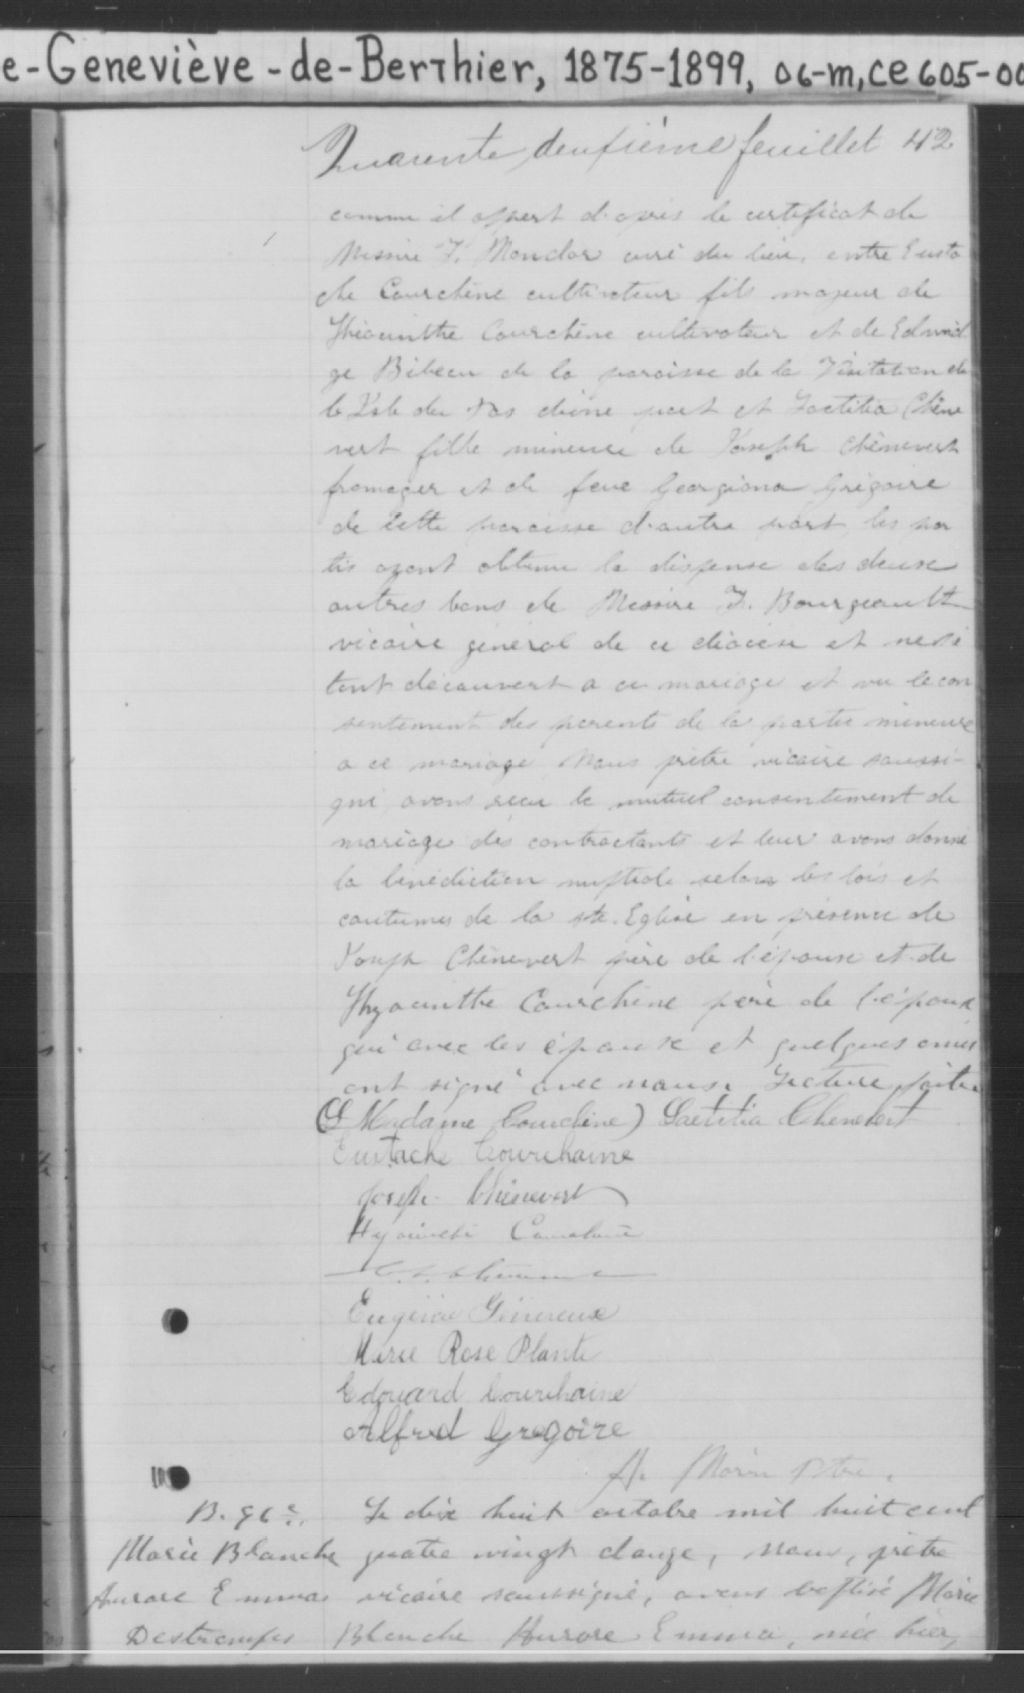 e-Geneviève-de-Berthier, 1875-1899, 06-m, CE605-00
Quarente deuxième feuillet 42
comme il appert d'après le certificat de
Messire F. Mondor curé du lieu, entre Eusta
che Courchène cultivateur fils majeur de
Hyacinthe Courchène cultivateur et de Edwid
ge Bibeau de la paroisse de la Visitation de
l'Isle du Pas d'une part et Laetitia Chêne
vert fille mineure de Joseph Chênevert
fromager et de feue Georgiana Grégoire
de cette paroisse d'autre part, les par
ties ayant obtenu la dispense des deux
autres bans de Messire F. Bourgeault
vicaire général de ce diocèse et ne s'é
tant découvert a ce mariage et vu le con
sentement des parents de la partie mineure
a ce mariage Nous prêtre vicaire soussi-
gné avons reçu le mutuel consentement de
mariage des contractants et leur avons donné
la bénédiction nuptiale selon les lois et
coutumes de la Ste. Eglise en présence de
Joseph Chênevert père de l'épouse et de
Hyacinthe Courchène père de l'époux
qui avec les époux et quelques amis
ont signé avec nous. Lecture faite.
(Madame Courchène) Laetitia Chenevert
Eustache Courchaine
Joseph Chênevert
Hyacinthe
Généreux
Marie Rose Plante
Edouard Courchaine
Alfred Gregoire
A. Morin Ptre.
B. 96e. Le dix huit octobre mil huit cent
Marie Blanche quatre vingt douze, nous, prêtre
Aurore Emma vicaire soussigné, avons baptisé Marie
Destrempes Blanche Aurore Emma, née hier,